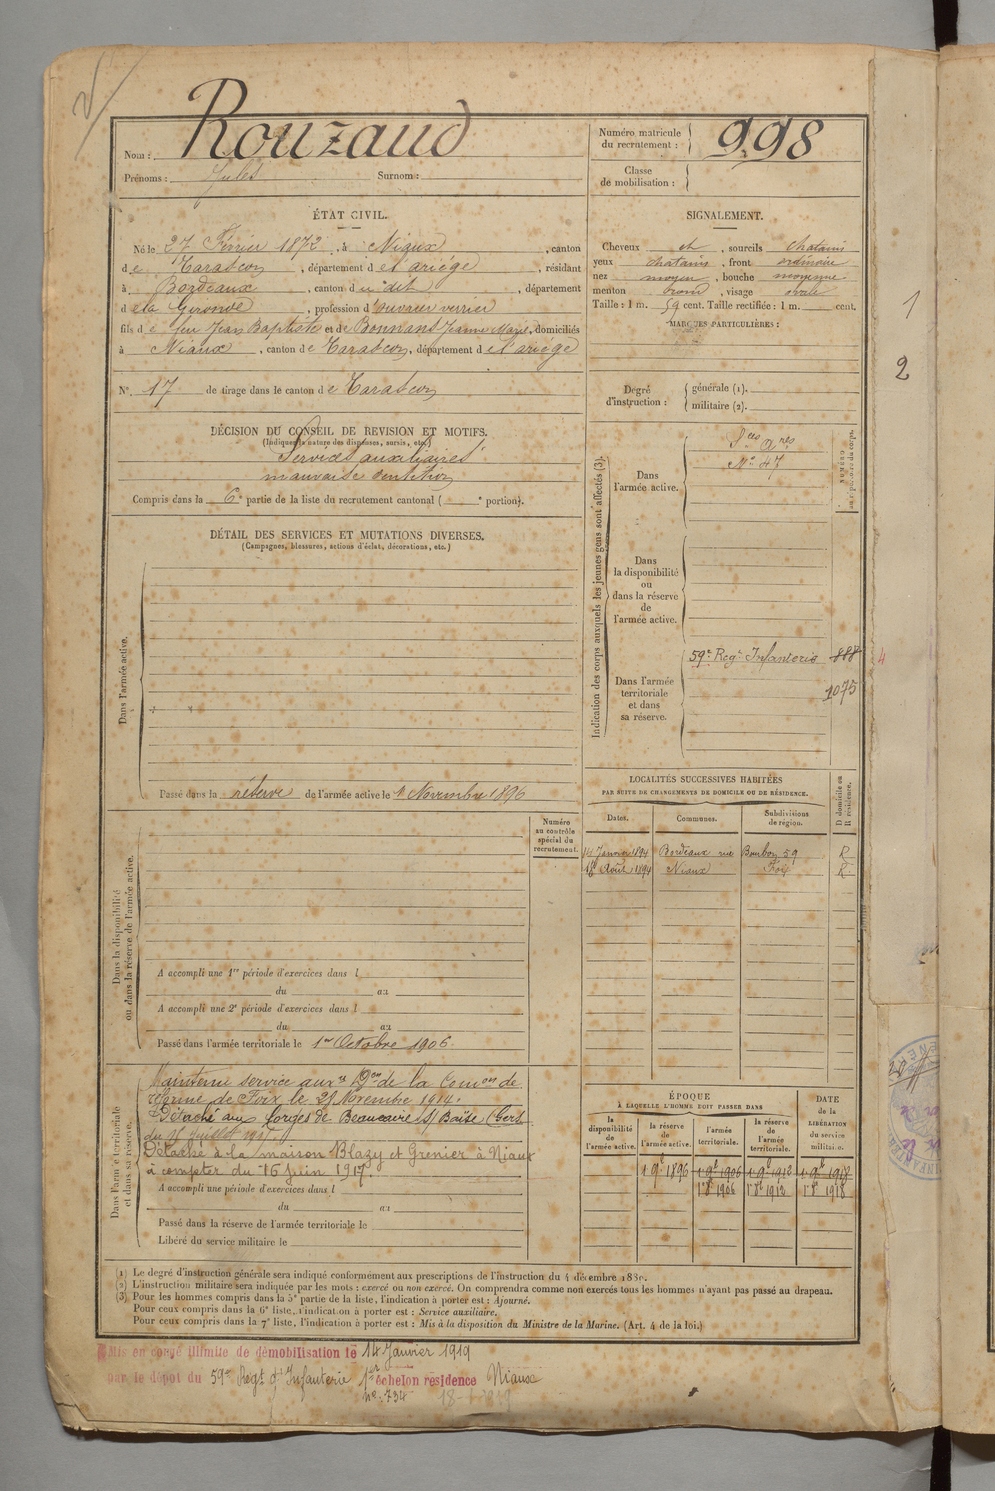 Nom : Rouzaud
Prénoms : Jules Surnom :
Numéro matricule
du recrutement : 998
Classe
de mobilisation :
ÉTAT CIVIL.
Né le 27 Février 1872, à Niaux, canton
de Tarascon, département de l'ariége, résidant
à Bordeaux, canton du dit, département
de la Gironde, profession d'ouvrier verrier
fils de feu Jean Baptiste et de Bonnans Jeanne Marie, domiciliés
à Niaux, canton de Tarascon, département de l'ariége
N° 17 de tirage dans le canton de Tarascon
DÉCISION DU CONSEIL DE REVISION ET MOTIFS.
(Indiquer la nature des dispenses, sursis, etc.)
Services auxiliaires
mauvaise dentition
Compris dans la 6e partie de la liste du recrutement cantonal ( e portion).
SIGNALEMENT.
Cheveux et, sourcils chatains
yeux chatains, front ordinaire
nez moyen, bouche moyenne
menton rond, visage ovale
Taille : 1 m. 59 cent. Taille rectifiée : 1 m. cent.
MARQUES PARTICULIÈRES :
Degré
d'instruction :
générale (1).
militaire (2).
1
2
DÉTAIL DES SERVICES ET MUTATIONS DIVERSES.
(Campagnes, blessures, actions d'éclat, décorations, etc.)
Dans l'armée active.
Passé dans la réserve de l'armée active le 1er Novembre 1896
Indication des corps auxquels les jeunes gens sont affectés (3).
Dans
l'armée active.
Sces aires
N° 47
Dans
la disponibilité
ou
dans la réserve
de
l'armée active.
Dans l'armée
territoriale
et dans
sa réserve.
59e Regt Infanterie 888
1075
4
LOCALITÉS SUCCESSIVES HABITÉES
PAR SUITE DE CHANGEMENTS DE DOMICILE OU DE RÉSIDENCE.
D domicile ou
R résidence.
Dates. Communes. Subdivisions
de région.
14 Janvier 1894 Bordeaux rue Bourbon 59 R
Août 1894 Niaux Foix R
Dans la disponibilité
ou dans la réserve de l'armée active.
Numéro
au contrôle
spécial du
recrutement.
A accompli une 1re période d'exercices dans l
du au
A accompli une 2e période d'exercices dans l
du au
Passé dans l'armée territoriale le 1er Octobre 1906
Dans l'armée territoriale
et dans sa réserve.
Maintenu service auxre Don de la Comon de
réforme de Foix le 25 Novembre 1914.
Détaché aux forges de Beaucaire s/ Baïse (Gers)
Détaché à la maison Blazy et Grenier à Niaux
à compter du 16 Juin 1917.
A accompli une période d'exercices dans l
du au
Passé dans la réserve de l'armée territoriale le
Libéré du service militaire le
ÉPOQUE
À LAQUELLE L'HOMME DOIT PASSER DANS
DATE
de la
LIBÉRATION
du service
militaire.
la
disponibilité
de
l'armée active.
la réserve
de
l'armée active.
l'armée
territoriale.
la réserve
de
l'armée
territoriale.
1 9e 1896 1 9e 1906 1 9e 1912 1 9e 1918
1er 8e 1906 1er 8e 1912 1er 8e 1918
(1) Le degré d'instruction générale sera indiqué conformément aux prescriptions de l'instruction du 4 décembre 1889.
(2) L'instruction militaire sera indiquée par les mots : exercé ou non exercé. On comprendra comme non exercés tous les hommes n'ayant pas passé au drapeau.
(3) Pour les hommes compris dans la 5e partie de la liste, l'indication à porter est : Ajourné.
Pour ceux compris dans la 6e liste, l'indication à porter est : Service auxiliaire.
Pour ceux compris dans la 7e liste, l'indication à porter est : Mis à la disposition du Ministre de la Marine. (Art. 4 de la loi.)
Mis en congé illimité de démobilisation le 14 Janvier 1919
par le dépôt du 59e Regt d'Infanterie 1er échelon residence Niaux
n° 734